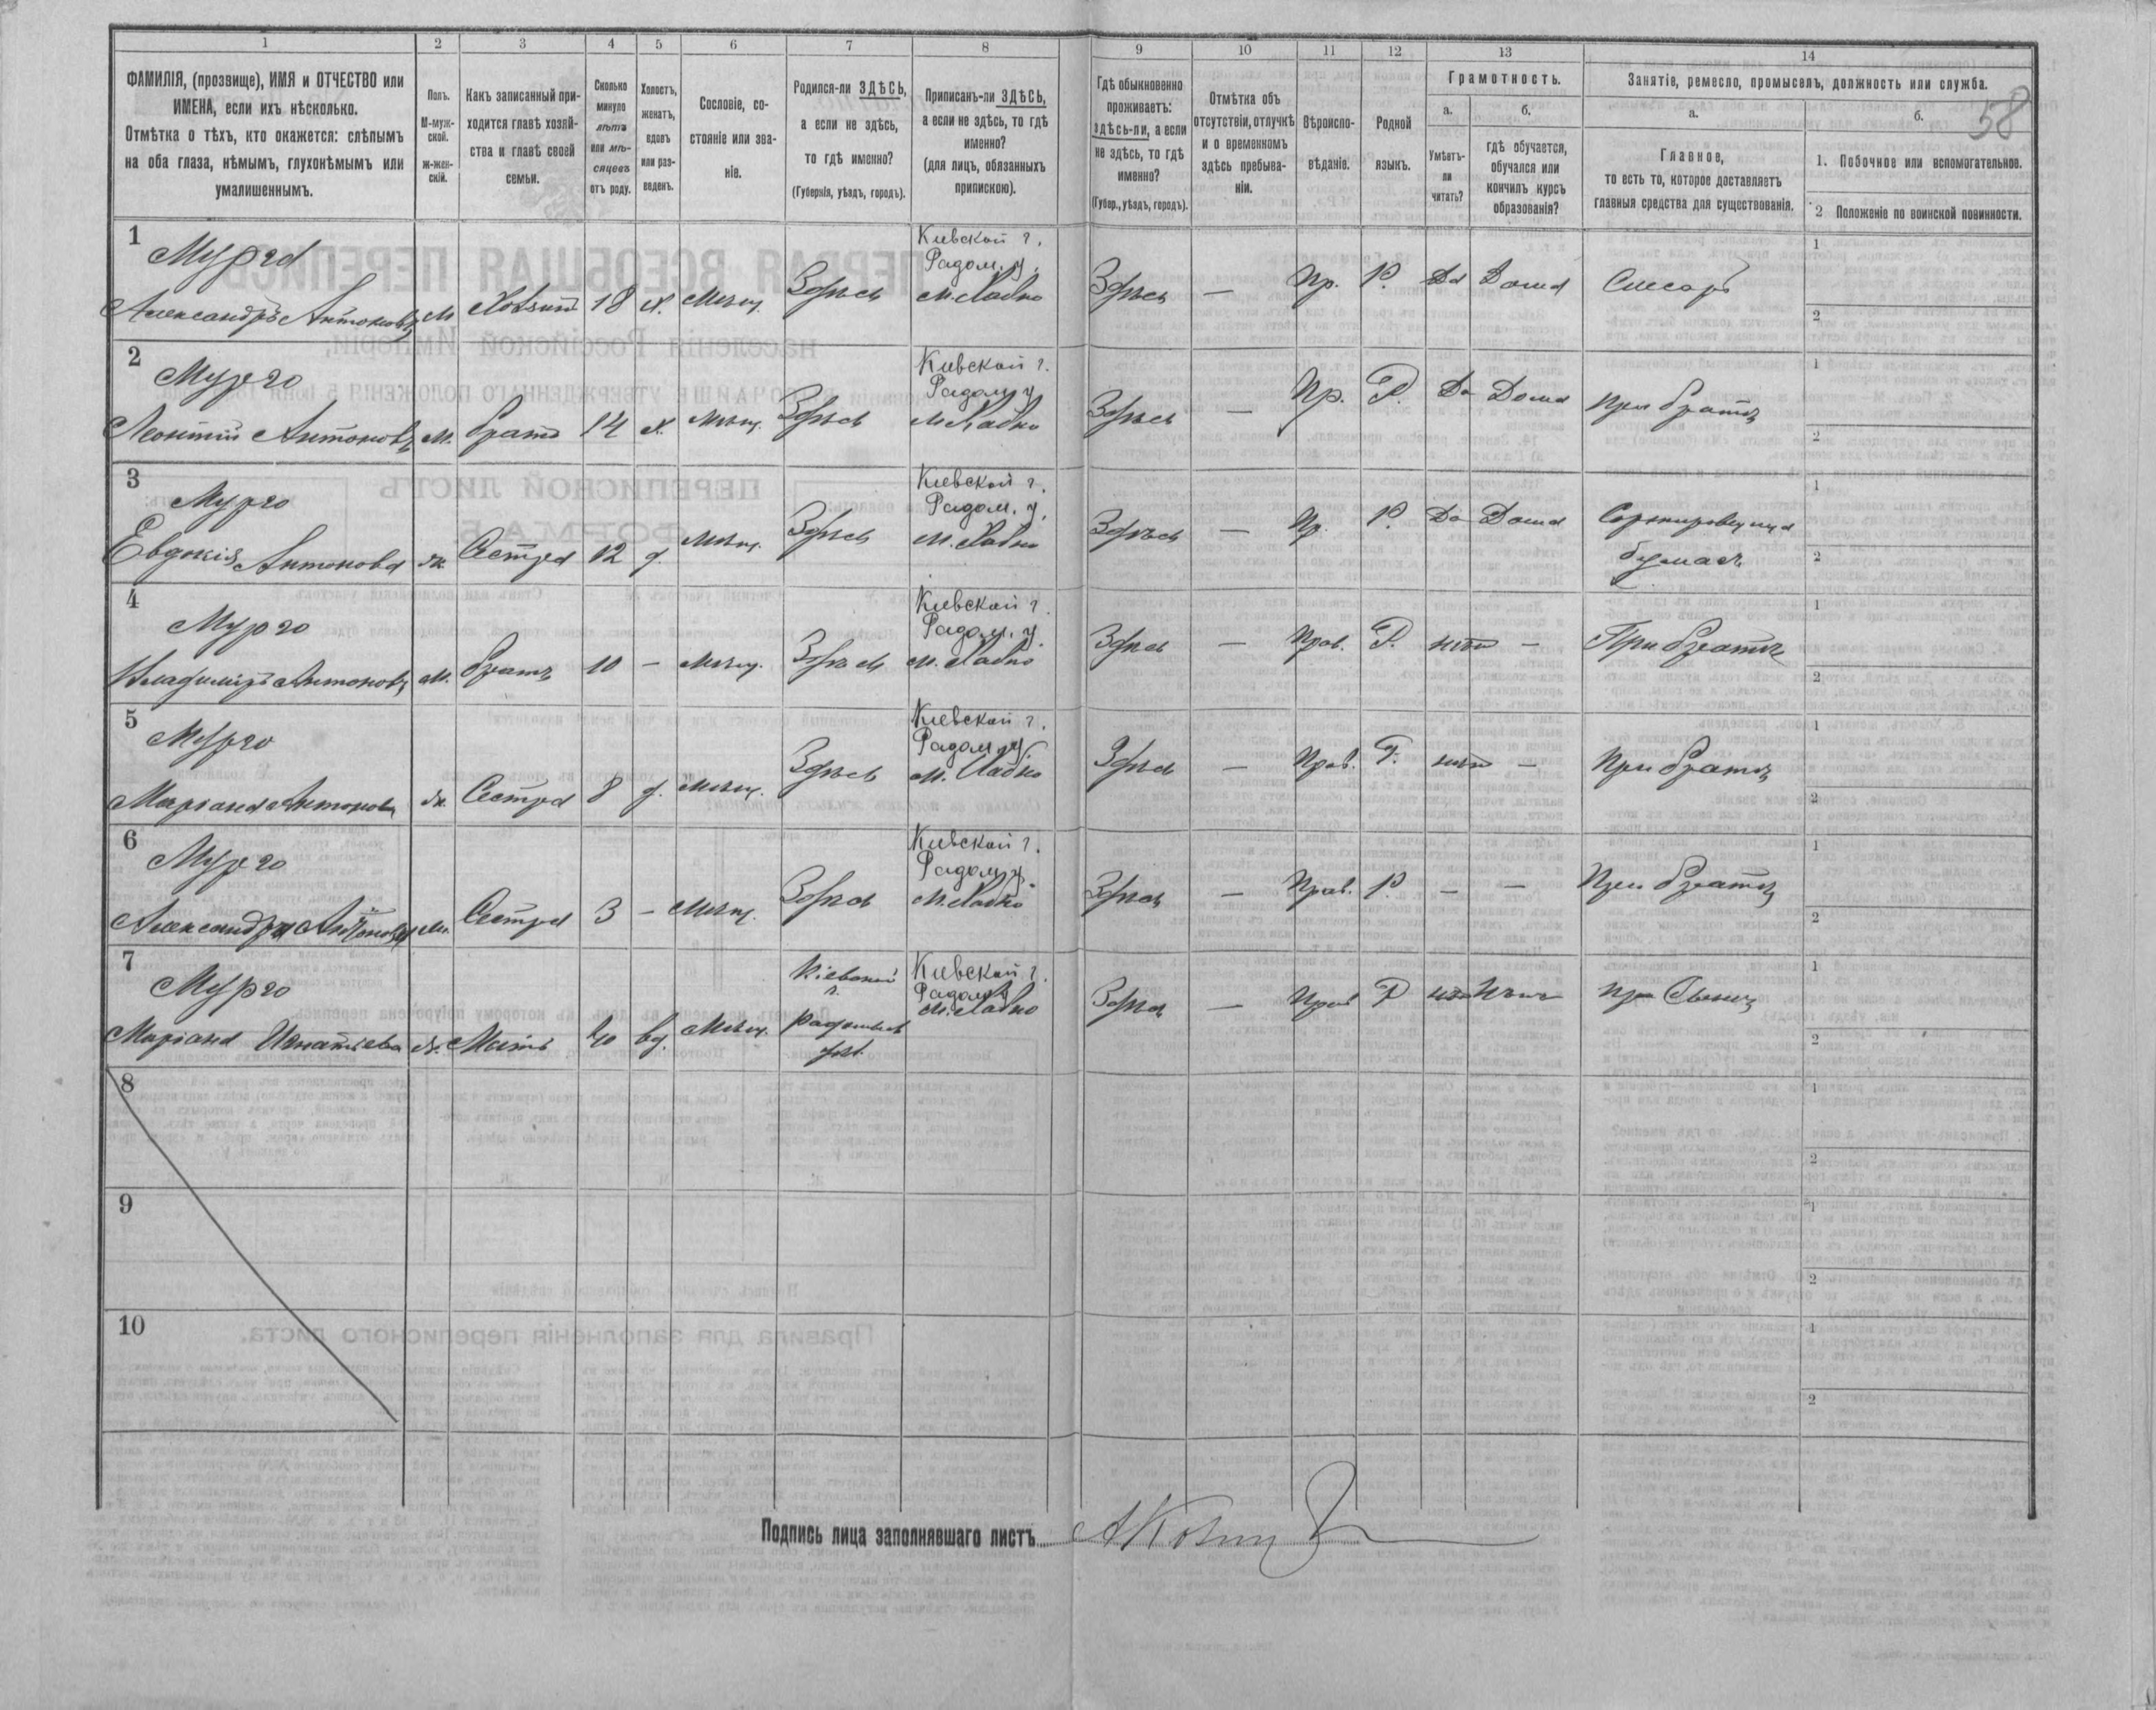 1 2 3 4 5 6 7 8 9 10 11 12 13 14
ФАМИЛІЯ, (прозвище), ИМЯ и ОТЧЕСТВО или
ИМЕНА, если ихъ нѣсколько.
Отмѣтка о тѣхъ, кто окажется: слѣпымъ
на оба глаза, нѣмымъ, глухонѣмымъ или
умалишеннымъ.
Полъ.
М-муж-
ской.
Ж-жен-
скій.
Какъ записанный при-
ходится главѣ хозяй-
ства и главѣ своей
семьи.
Сколько
минуло
лѣтъ
или мѣ-
сяцевъ
отъ роду.
Холостъ,
женатъ,
вдовъ
или раз-
веденъ.
Сословіе, со-
стояніе или зва-
ніе.
Родился-ли ЗДѢСЬ,
а если не здѣсь,
то гдѣ именно?
(Губернія, уѣздъ, городъ).
Приписанъ-ли ЗДѢСЬ,
а если не здѣсь, то гдѣ
именно?
(для лицъ, обязанныхъ
припискою).
Гдѣ обыкновенно
проживаетъ:
здѣсь-ли, а если
не здѣсь, то гдѣ
именно?
(Губер., уѣздъ, городъ).
Отмѣтка объ
отсутствіи, отлучкѣ
и о временномъ
здѣсь пребыва-
ніи.
Вѣроиспо-
вѣданіе.
Родной
языкъ.
Грамотность.
а.
Умѣетъ-
ли
читать?
б.
гдѣ обучается,
обучался или
кончилъ курсъ
образованія?
Занятіе, ремесло, промыселъ, должность или служба.
а.
Главное,
то есть то, которое доставляетъ
главныя средства для существованія.
б.
58
1. Побочное или вспомогательное.
2 Положеніе по воинской повинности.
1
Мурго
Александръ Антоновъ М Хозяинъ 18 х. Мѣщ. Здѣсь
Кіевской г.
Радом. у.
Здѣсь — Пр. Р. Да Дома Слесарь
1
2
2
Мурго
Леонтій Антоновъ М. братъ 14 х. Мѣщ. Здѣсь
Кіевской г.
Радом. у.
Здѣсь — Пр. Р. Да Дома При братѣ
1
2
3
Мурго
Евдокія Антонова ж. Сестра 12 д. Мѣщ. Здѣсь
Кіевской г.
Радом. у.
Здѣсь — Пр. Р. Да Дома
1
2
4
Мурго
Владиміръ Антоновъ М. братъ 10 — Мѣщ. Здѣсь
Кіевской г.
Радом. у.
Здѣсь — Прав. Р. нѣтъ — При братѣ
1
2
5
Мурго
Маріана Антонова ж. Сестра 8 д. Мѣщ. Здѣсь
Кіевской г.
Радом. у.
Здѣсь — Прав. Р. нѣтъ — При братѣ
1
2
6
Мурго
Александра Антонова Сестра 3 — Мѣщ. Здѣсь
Кіевской г.
Радом. у.
Здѣсь — Прав. Р. — — При братѣ
1
2
7
Мурго
Маріана Игнатьева Мать 40 вд. Мѣщ.
Кіевской
г.
Кіевской г.
Радом. у.
Здѣсь — Прав Р При Сынѣ
1
2
8
1
2
9
1
2
10
1
2
Подпись лица заполнявшаго листъ